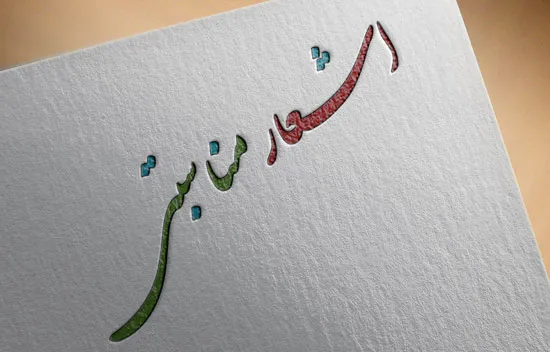 اشعار مناسبتی